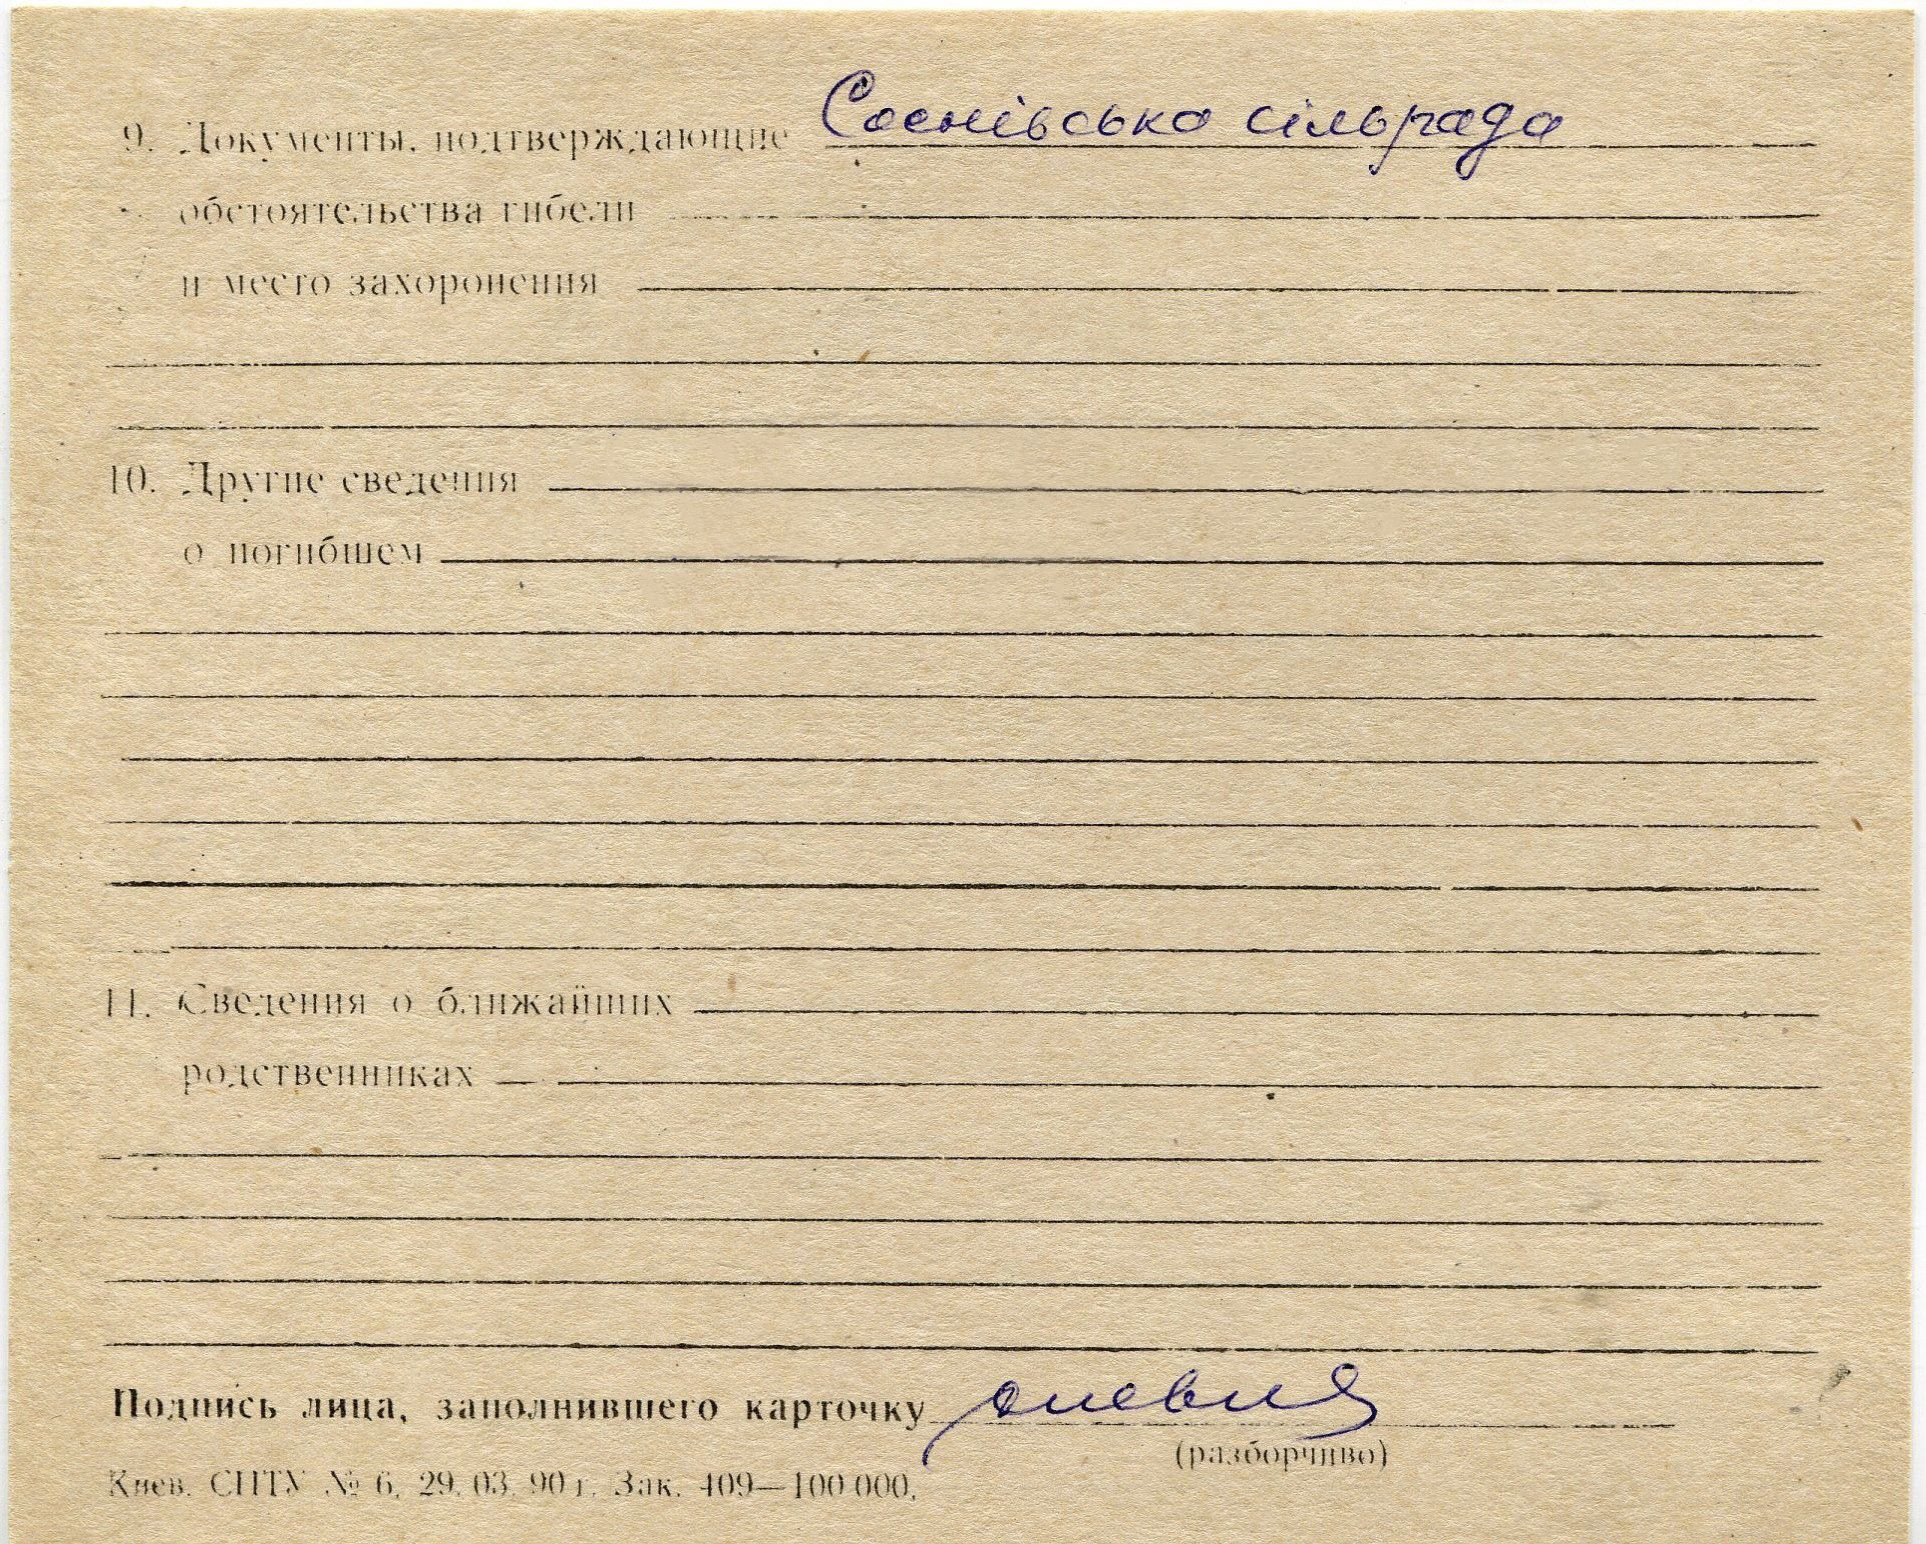 9. Документы, подтверждающие Соснівська сільрада
обстоятельства гибели
и место захоронения
10. Другие сведения
о погибшем
11. Сведения о ближайших
родственниках
Подпись лица, заполнившего карточку
(разборчиво)
Киев. СПТУ № 6, 29. 03. 90 г. Зак. 409—100 000.